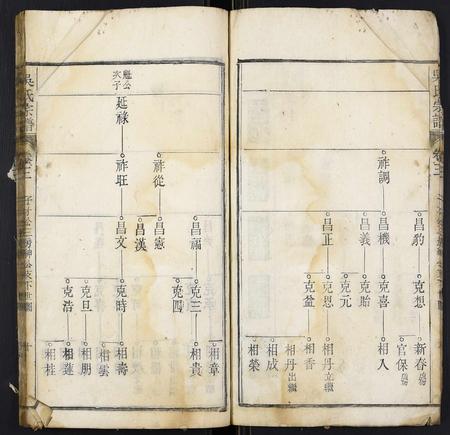 吳氏宗譜
卷三
昌豹
克想
新春
官保
祚調
昌機
克喜
相入
昌義
克貽
克元
昌正
克恩
相丹 立繼
相香
克盆
相丹 出繼
相成
相榮
昌福
克三
相章
相貴
克圓
祚從
昌憲
昌漢
繼公
次子
延祿
祚旺
昌文
克時
相壽
相雲
克旦
相朋
克浩
相蓮
相桂
吳氏宗譜
卷三
十